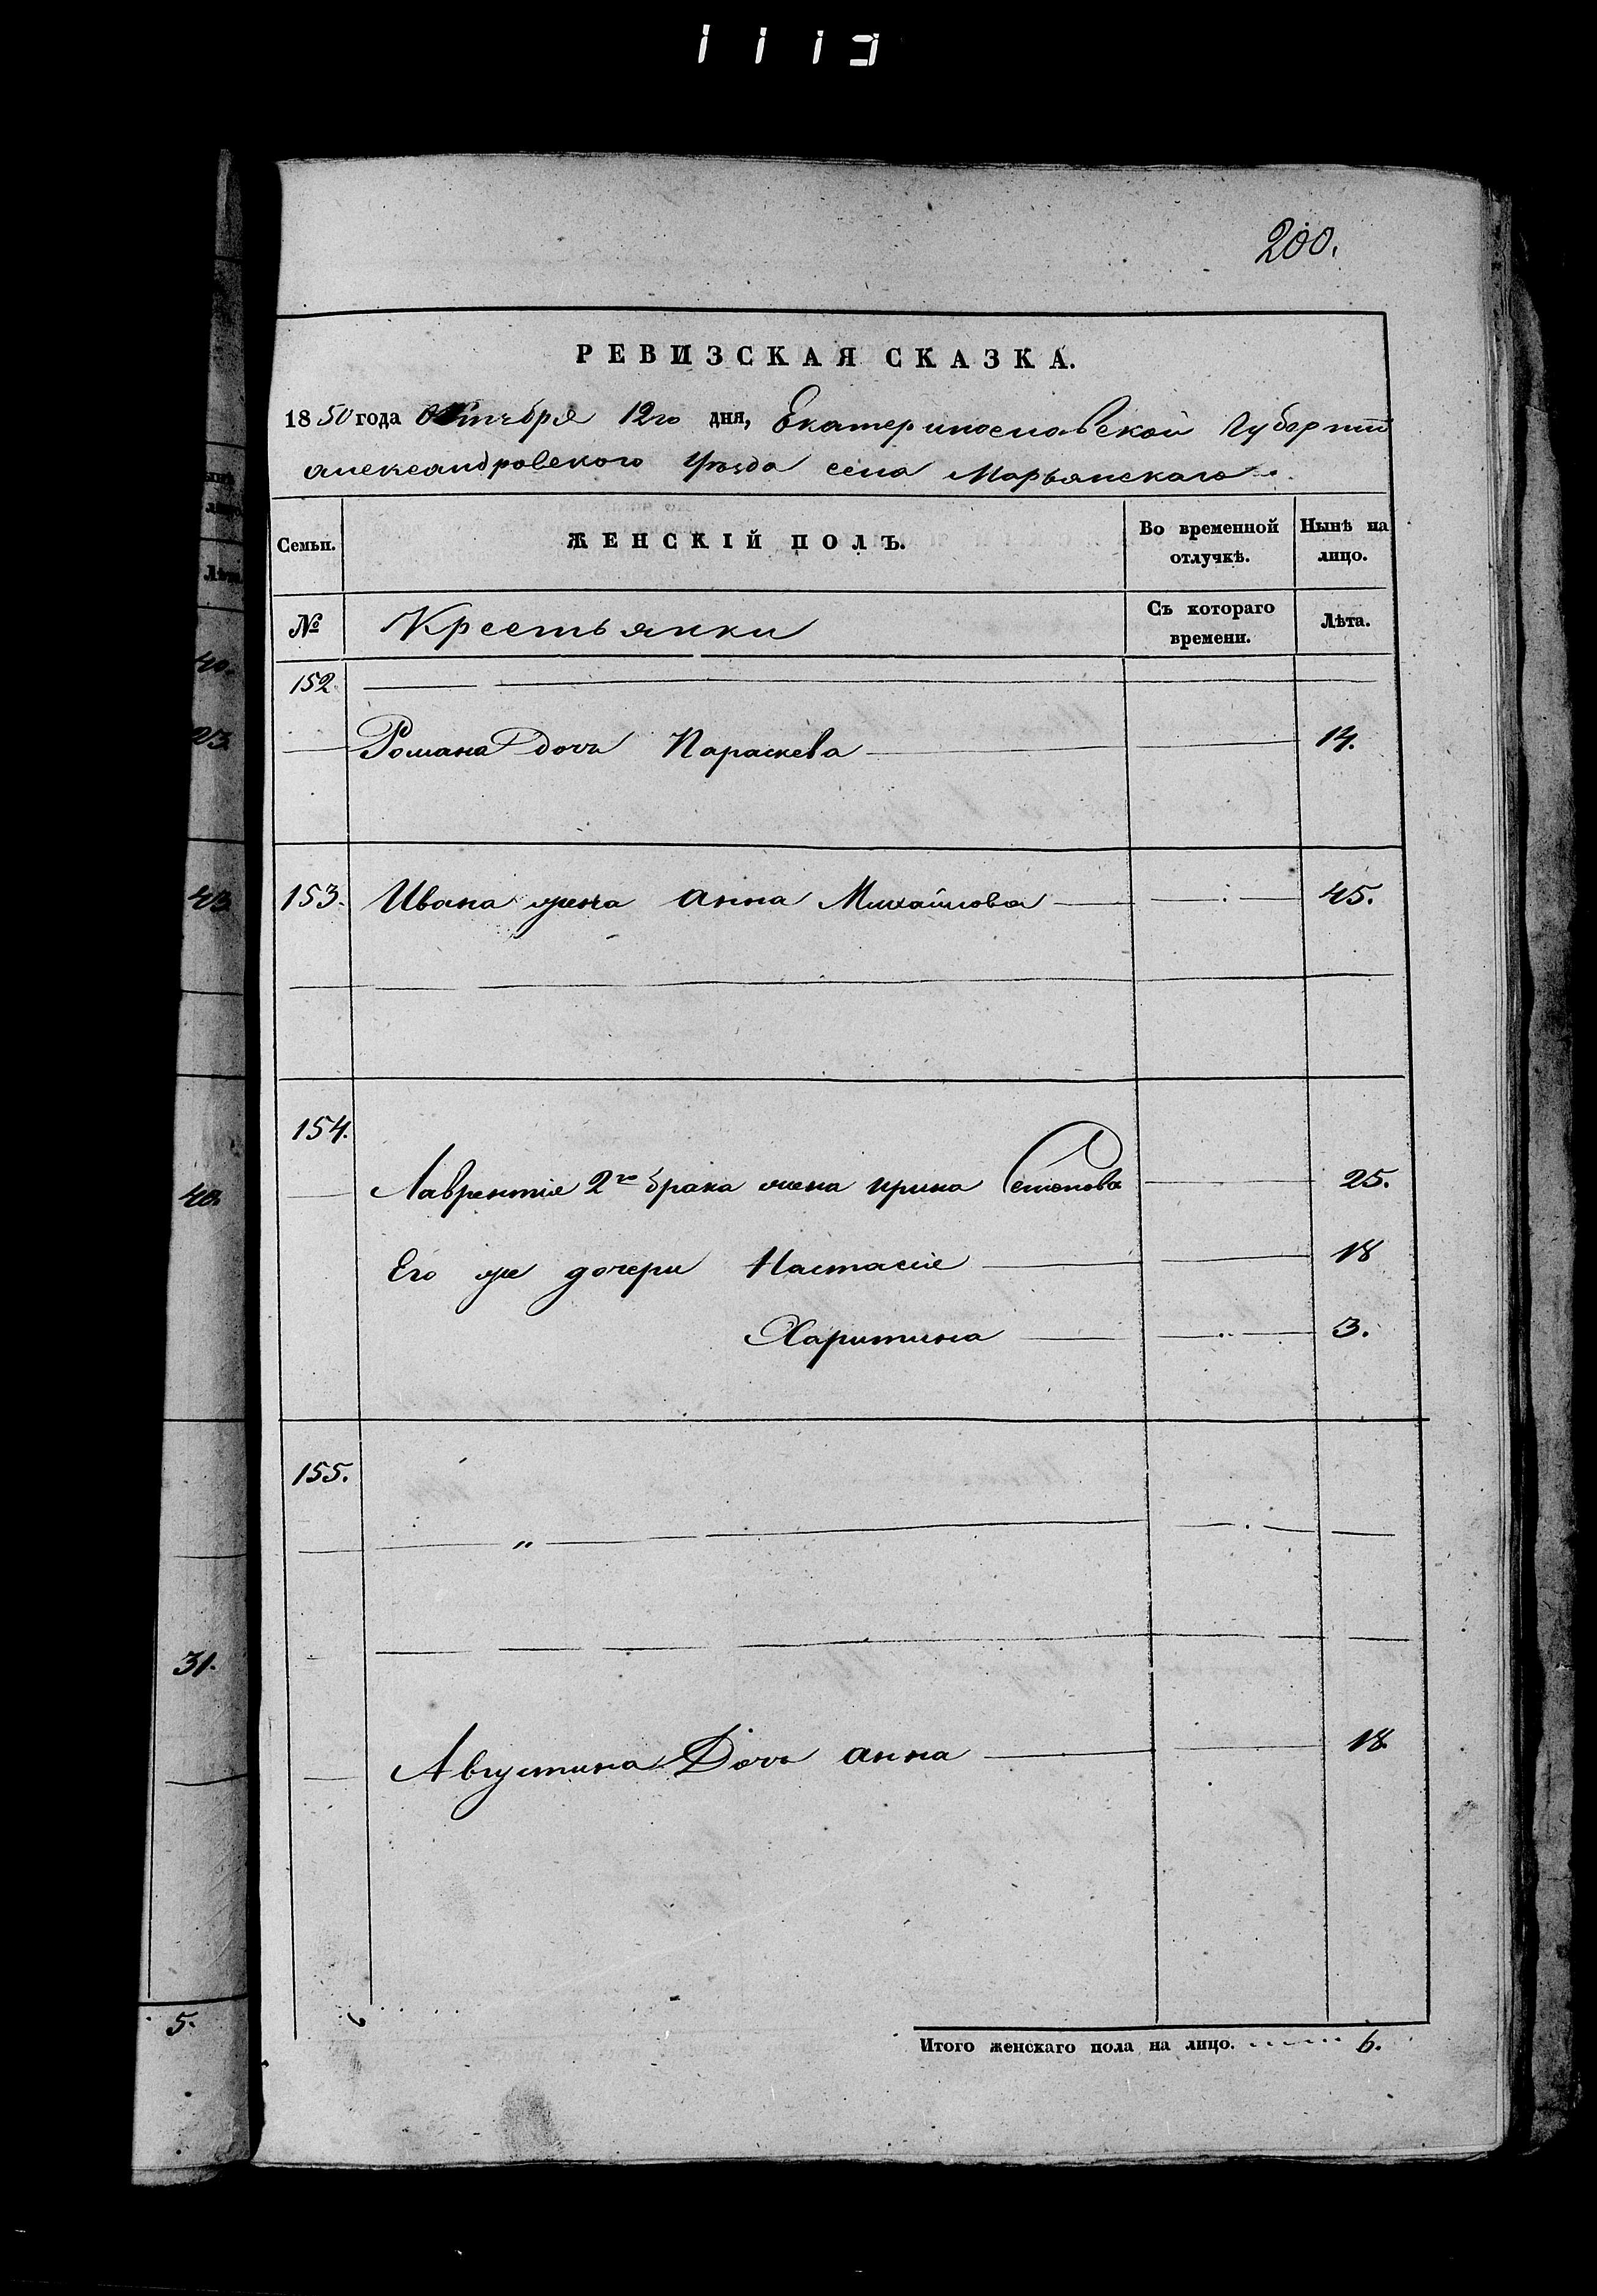 1113
200.
РЕВИЗСКАЯ СКАЗКА.
1850 года Октября 12го дня, Екатеринославской Губернии
Александровского Уѣзда села Марьянскаго.
Семьи.
ЖЕНСКІЙ ПОЛЪ.
Во временной отлучкѣ.
Нынѣ на лицо.
№
Крестьянки
Съ котораго времени.
Лѣта.
152.
Романа дочь Параскева 14.
153. Ивана жена анна Михайлова 45.
154.
Лаврентія 2го брака жена ирина Семенова 25.
Его же дочери Настасія 18
Харитина 3.
155.
"
Августина Дочь анна 18
Итого женскаго пола на лицо. 6.
40.
23.
43
40.
31.
5.